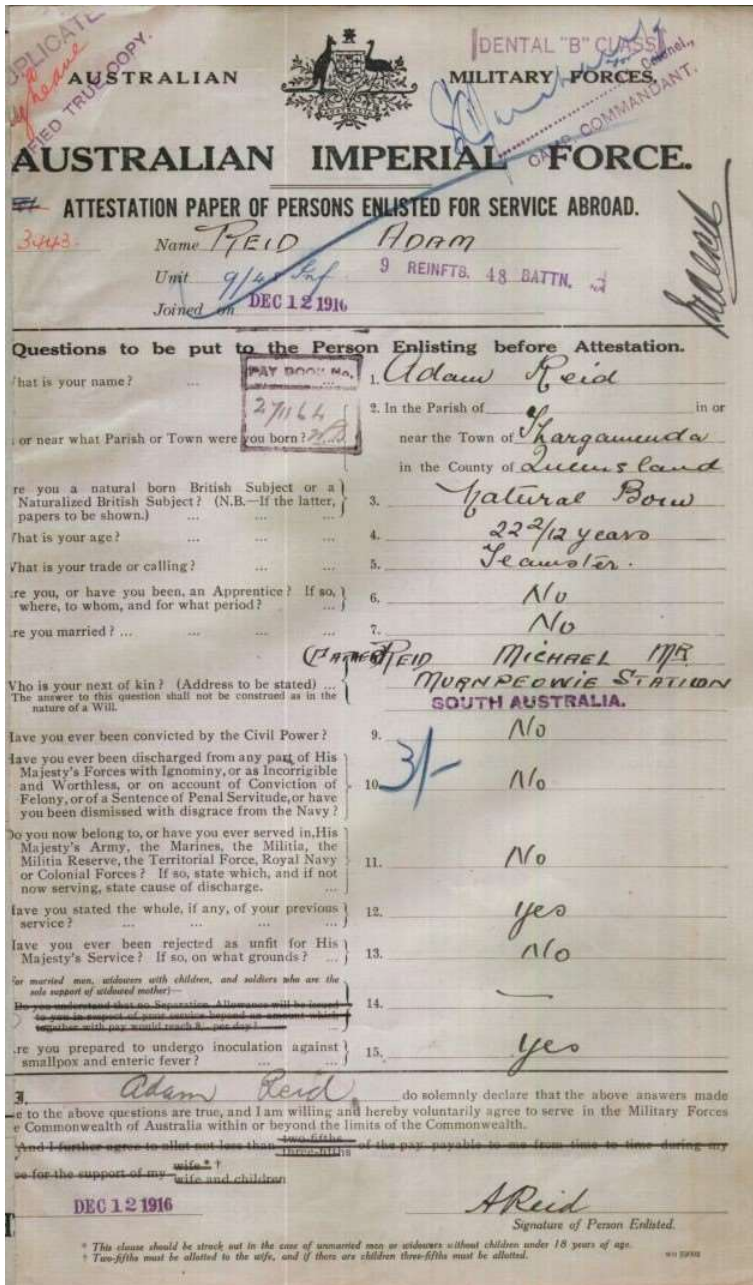 DUPLICATE
FIED TRUE COPY.
DENTAL "B" CLASS
AUSTRALIAN MILITARY FORCES.
Colonel,
CAMP COMMANDANT.
AUSTRALIAN IMPERIAL FORCE.
ATTESTATION PAPER OF PERSONS ENLISTED FOR SERVICE ABROAD.
3443. Name REID ADAM
Unit 9/48 Inf 9 REINFTS. 48 BATTN.
Joined on DEC 12 1916
Questions to be put to the Person Enlisting before Attestation.
hat is your name? ... ... 1. Adam Reid
PAY BOOK No.
271164
2. In the Parish of in or
or near what Parish or Town were you born? near the Town of Thargamenda
in the County of Queensland
re you a natural born British Subject or a
Naturalized British Subject? (N.B.—If the latter,
papers to be shown.) ... ... ... 3. Natural Born
hat is your age? ... ... ... 4. 22 2/12 years
hat is your trade or calling? ... ... 5. Teamster.
re you, or have you been, an Apprentice? If so,
where, to whom, and for what period? ... ... 6. No
re you married? ... ... ... ... 7. No
(FATHER) REID MICHAEL MR
Who is your next of kin? (Address to be stated) ... MURNPEOWIE STATION
The answer to this question shall not be construed as in the
nature of a Will.
SOUTH AUSTRALIA.
Have you ever been convicted by the Civil Power? 9. No
Have you ever been discharged from any part of His
Majesty's Forces with Ignominy, or as Incorrigible
and Worthless, or on account of Conviction of
Felony, or of a Sentence of Penal Servitude, or have
you been dismissed with disgrace from the Navy?
10. 3/- No
Do you now belong to, or have you ever served in, His
Majesty's Army, the Marines, the Militia, the
Militia Reserve, the Territorial Force, Royal Navy
or Colonial Forces? If so, state which, and if not
now serving, state cause of discharge. ...
11. No
Have you stated the whole, if any, of your previous
service? ... ... ... ... 12. Yes
Have you ever been rejected as unfit for His
Majesty's Service? If so, on what grounds? ... 13. No
For married men, widowers with children, and soldiers who are the
sole support of widowed mother)—
Do you understand that no Separation Allowance will be issued
to you in respect of your service beyond an amount which
together with pay would reach 8/- per day?
14. —
re you prepared to undergo inoculation against
smallpox and enteric fever? ... ... 15. Yes
I, Adam Reid do solemnly declare that the above answers made
e to the above questions are true, and I am willing and hereby voluntarily agree to serve in the Military Forces
e Commonwealth of Australia within or beyond the limits of the Commonwealth.
And I further agree to allot not less than two-fifths three-fifths of the pay payable to me from time to time during my
ce for the support of my wife* † wife and children
DEC 12 1916 A Reid
Signature of Person Enlisted.
* This clause should be struck out in the case of unmarried men or widowers without children under 18 years of age.
† Two-fifths must be allotted to the wife, and if there are children three-fifths must be allotted.